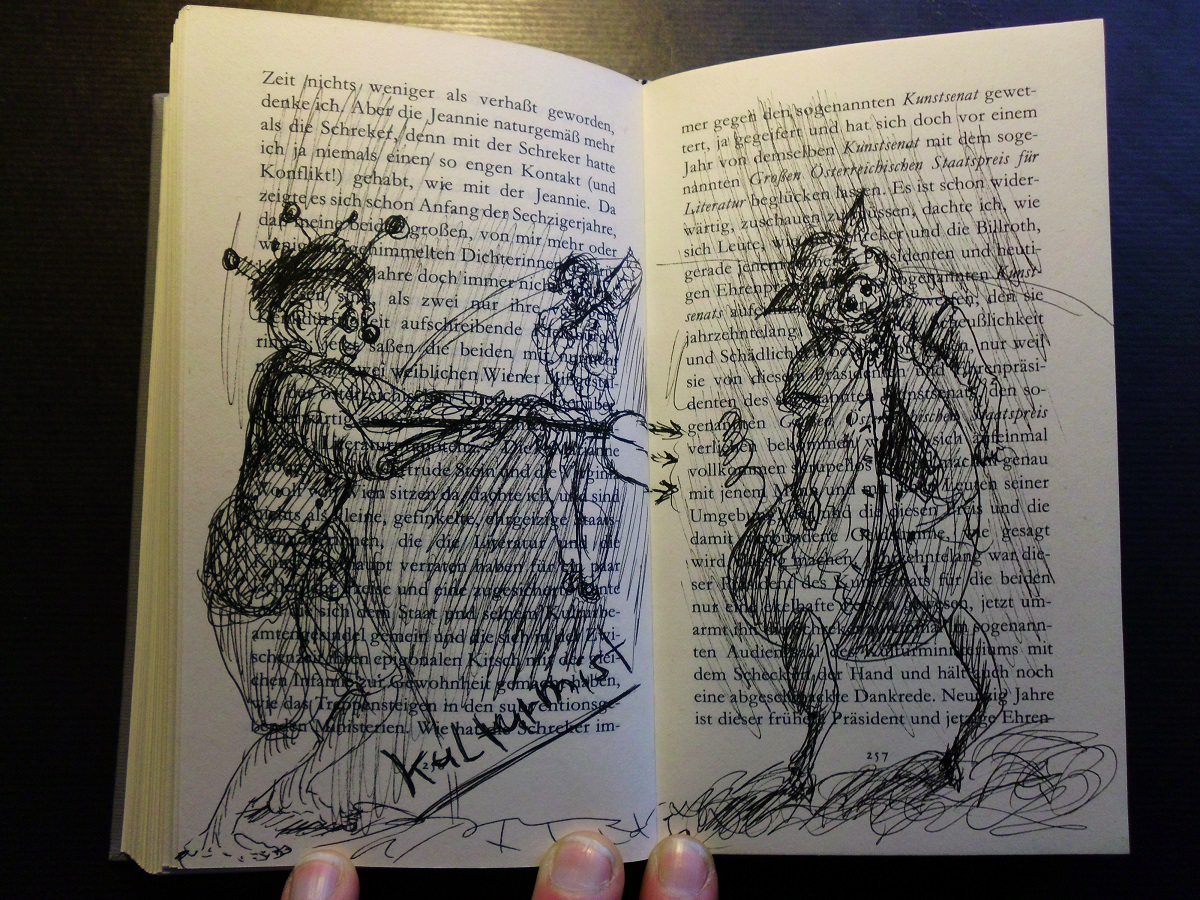 Zeit nichts weniger als verhaßt geworden,
denke ich. Aber die Jeannie naturgemäß mehr
als die Schreker, denn mit der Schreker hatte
ich ja niemals einen so engen Kontakt (und
Konflikt!) gehabt, wie mit der Jeannie. Da
zeigte es sich schon Anfang der Sechzigerjahre,
daß meine beiden großen, von mir mehr oder
weniger angehimmelten Dichterinnen
Jahre doch immer nich
als zwei nur ihre
aufschreibende
jetzt saßen die beiden mit nurmehr
zwei weiblichen Wiener Mißgestal-
der österreichischen
Literatur
Gertrude Stein und die Virginia
Woolf von Wien sitzen da, dachte ich, und sind
nichts als kleine, gefinkelte, ehrgeizige Staats-
die die Literatur und die
Kunst überhaupt verraten haben für ein paar
Preise und eine zugesicherte Rente
und die sich dem Staat und seinem Kulturbe-
amtengesindel gemein und die sich in der Zwi-
schenzeit ihren epigonalen Kitsch mit der glei-
chen Infamie zur Gewohnheit gemacht haben,
wie das Treppensteigen in den subventionsge-
benden Ministerien. Wie hat die Schreker im-
Kulturmist
mer gegen den sogenannten Kunstsenat gewet-
tert, ja gegeifert und hat sich doch vor einem
Jahr von demselben Kunstsenat mit dem soge-
nannten Großen Österreichischen Staatspreis für
Literatur beglücken lassen. Es ist schon wider-
wärtig, zuschauen zu müssen, dachte ich, wie
sich Leute, wie die Schreker und die Billroth,
gerade jenem Präsidenten und heuti-
gen Ehrenpräsidenten sogenannten Kunst-
senats den sie
jahrzehntelang Scheußlichkeit
und Schädlichkeit nur weil
sie von diesem Präsidenten und Ehrenpräsi-
denten des sogenannten Kunstsenats, den so-
genannten Großen Österreichischen Staatspreis
verliehen bekommen sich aufeinmal
vollkommen skrupellos gemacht haben genau
mit jenem Mann und mit den Leuten seiner
Umgebung, die und die diesen Preis und die
damit verbundene Geldsumme, wie gesagt
wird, flüssig machen. Jahrzehntelang war die-
ser Präsident des Kunstsenats für die beiden
nur eine ekelhafte Person gewesen, jetzt um-
armt ihn die Schreker aufeinmal im sogenann-
ten Audienzsaal des Kulturministeriums mit
dem Scheck in der Hand und hält auch noch
eine abgeschmackte Dankrede. Neunzig Jahre
ist dieser frühere Präsident und jetzige Ehren-
257